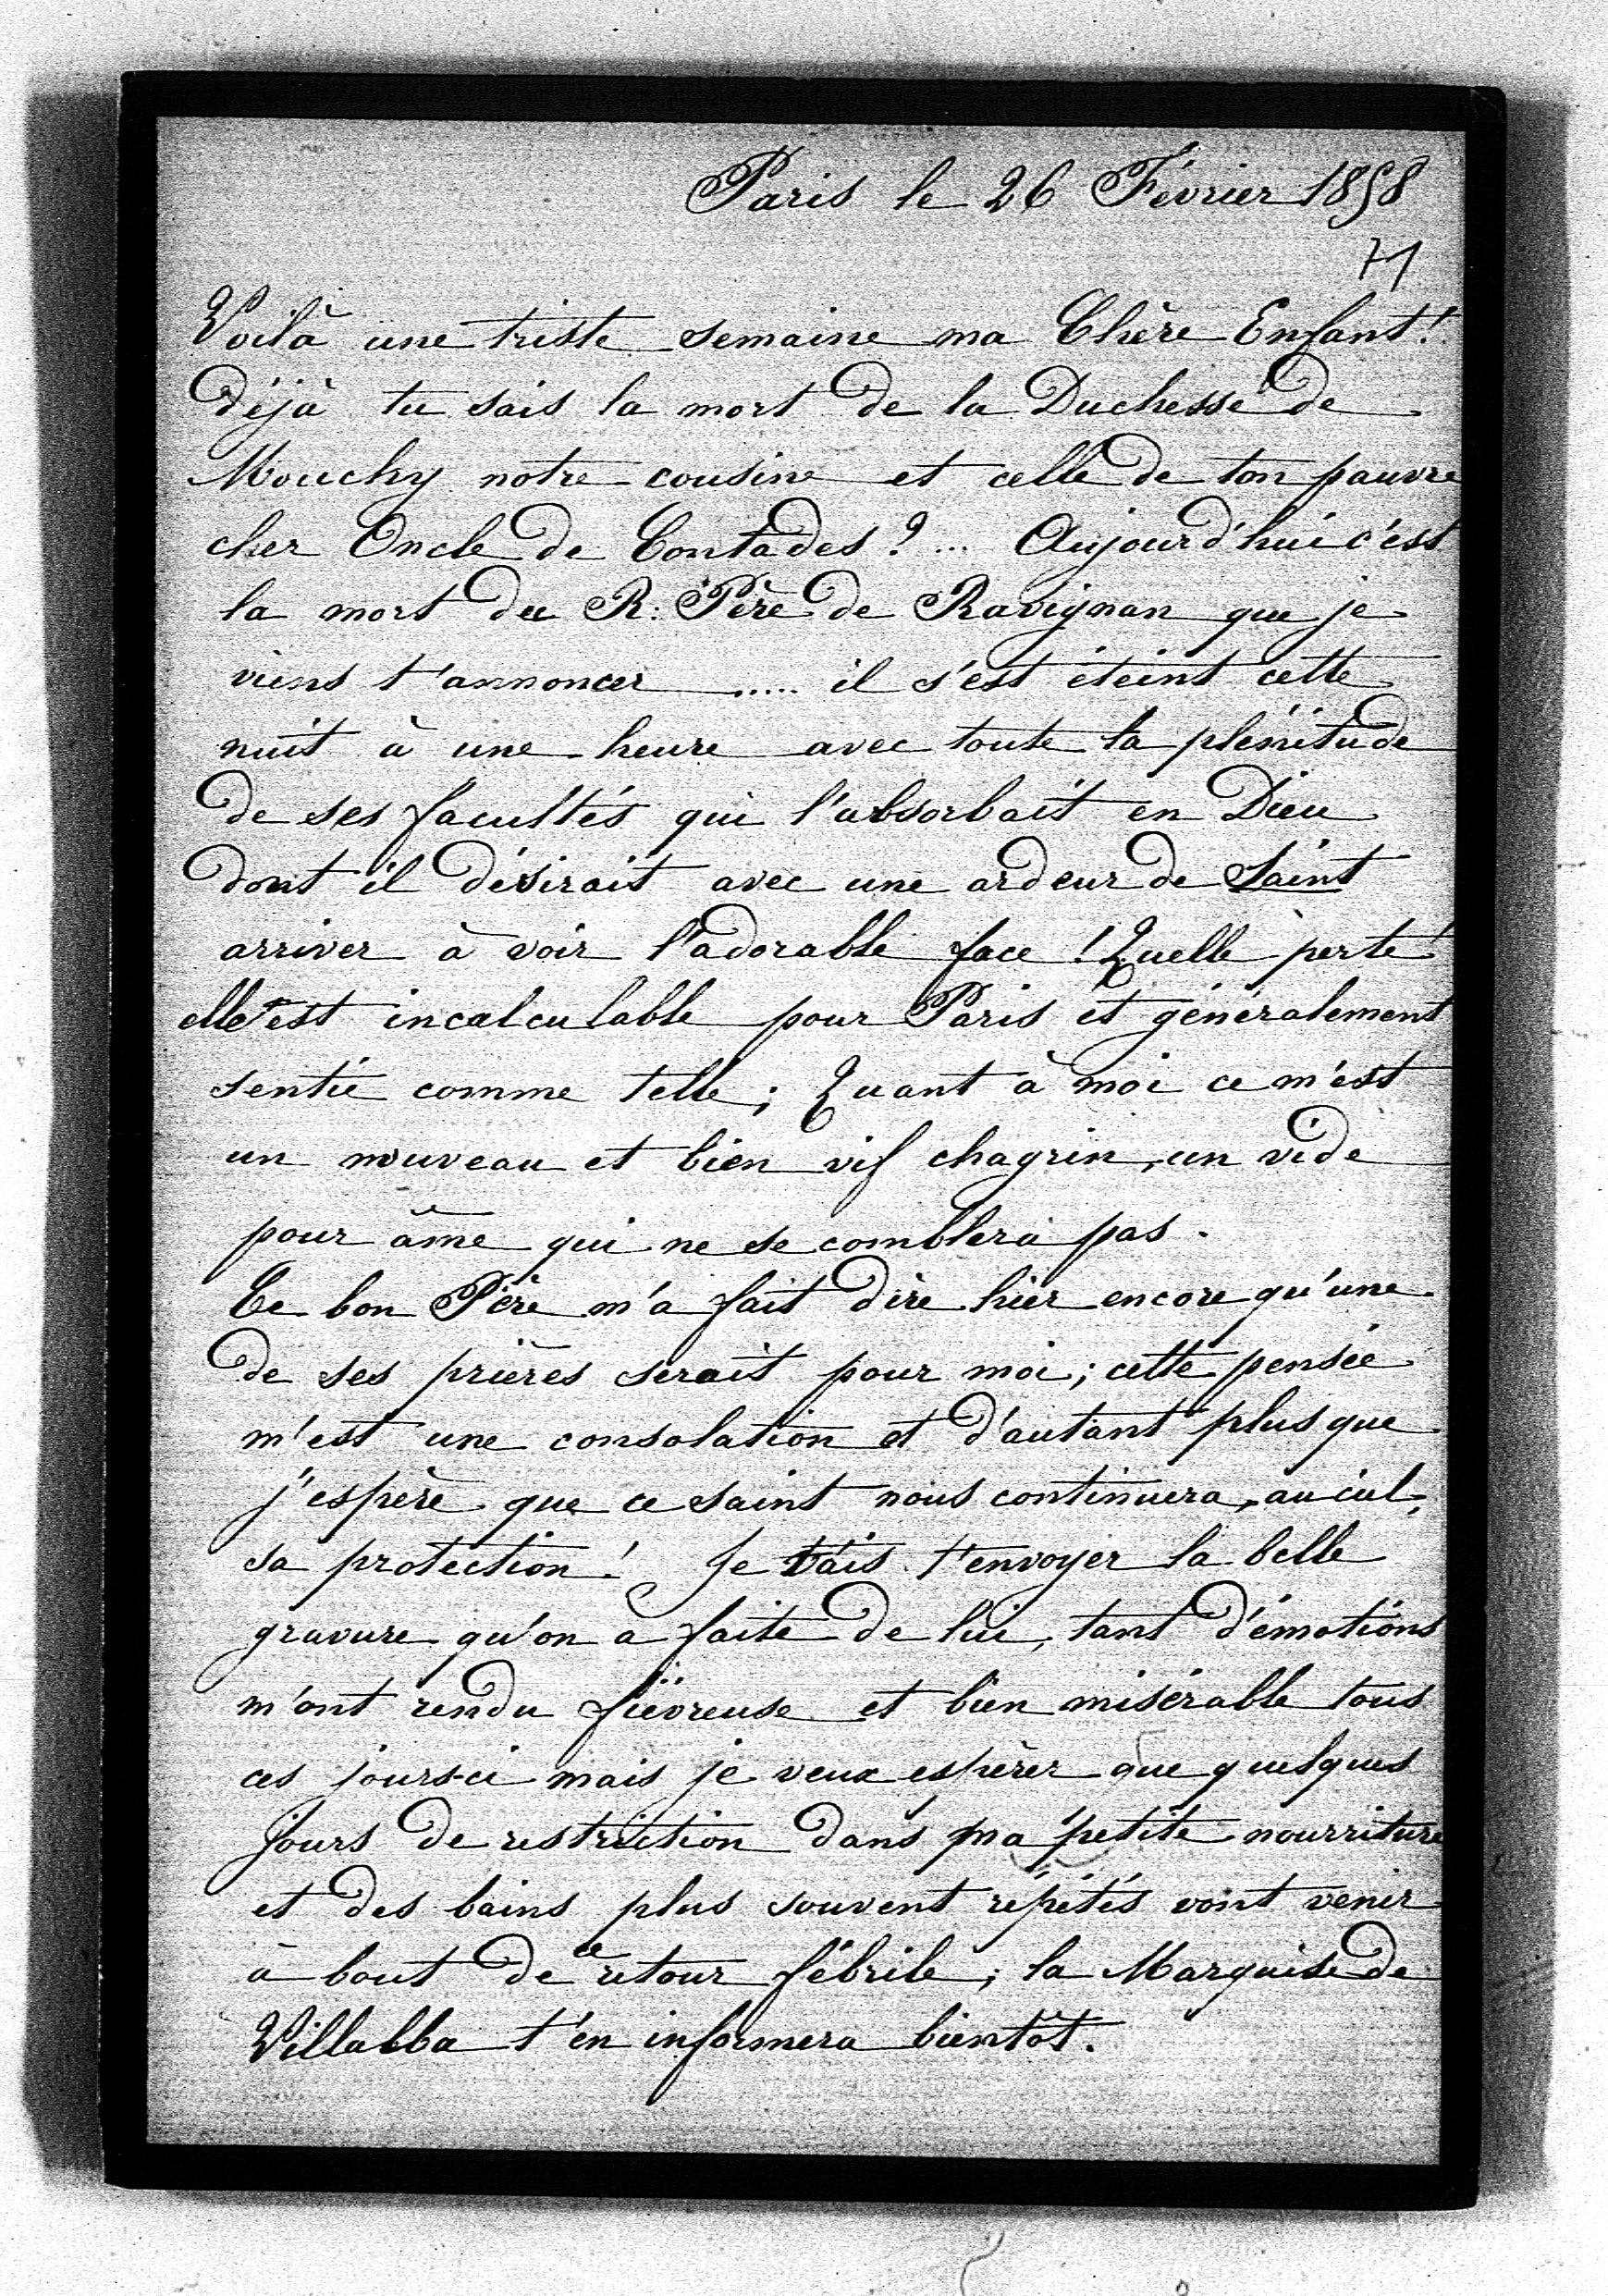 Paris le 26 Février 1858
71
Voilà une triste semaine ma Chère Enfant!
déjà tu sais la mort de la Duchesse de
Mouchy notre cousine et celle de ton pauvre
cher Oncle de Contades ?... Aujourd'hui c'est
la mort du R: Père de Ravignan que je
viens t'annoncer ..... il s'est éteint cette
nuit à une heure avec toute la plénitude
de ses facultés qui l'absorbait en Dieu
dont il désirait avec une ardeur de Saint
arriver à voir l'adorable face ! Quelle perte!
elle est incalculable pour Paris et généralement
sentie comme telle ; Quant à moi ce m'est
un nouveau et bien vif chagrin, un vide
pour âme qui ne se comblera pas.
Ce bon Père m'a fait dire hier encore qu'une
de ses prières serait pour moi ; cette pensée
m'est une consolation et d'autant plus que
j'espère que ce saint nous continuera, au ciel,
sa protection ! Je vais t'envoyer la belle
gravure qu'on a faite de lui, tant d'émotions
m'ont rendu fiévreuse et bien misérable tous
ces jours-ci mais je veux espérer que quelques
jours de restriction dans ma petite nourriture
et des bains plus souvent répétés vont venir
à bout de ce retour fébrile ; la Marquise de
Villalba t'en informera bientôt.